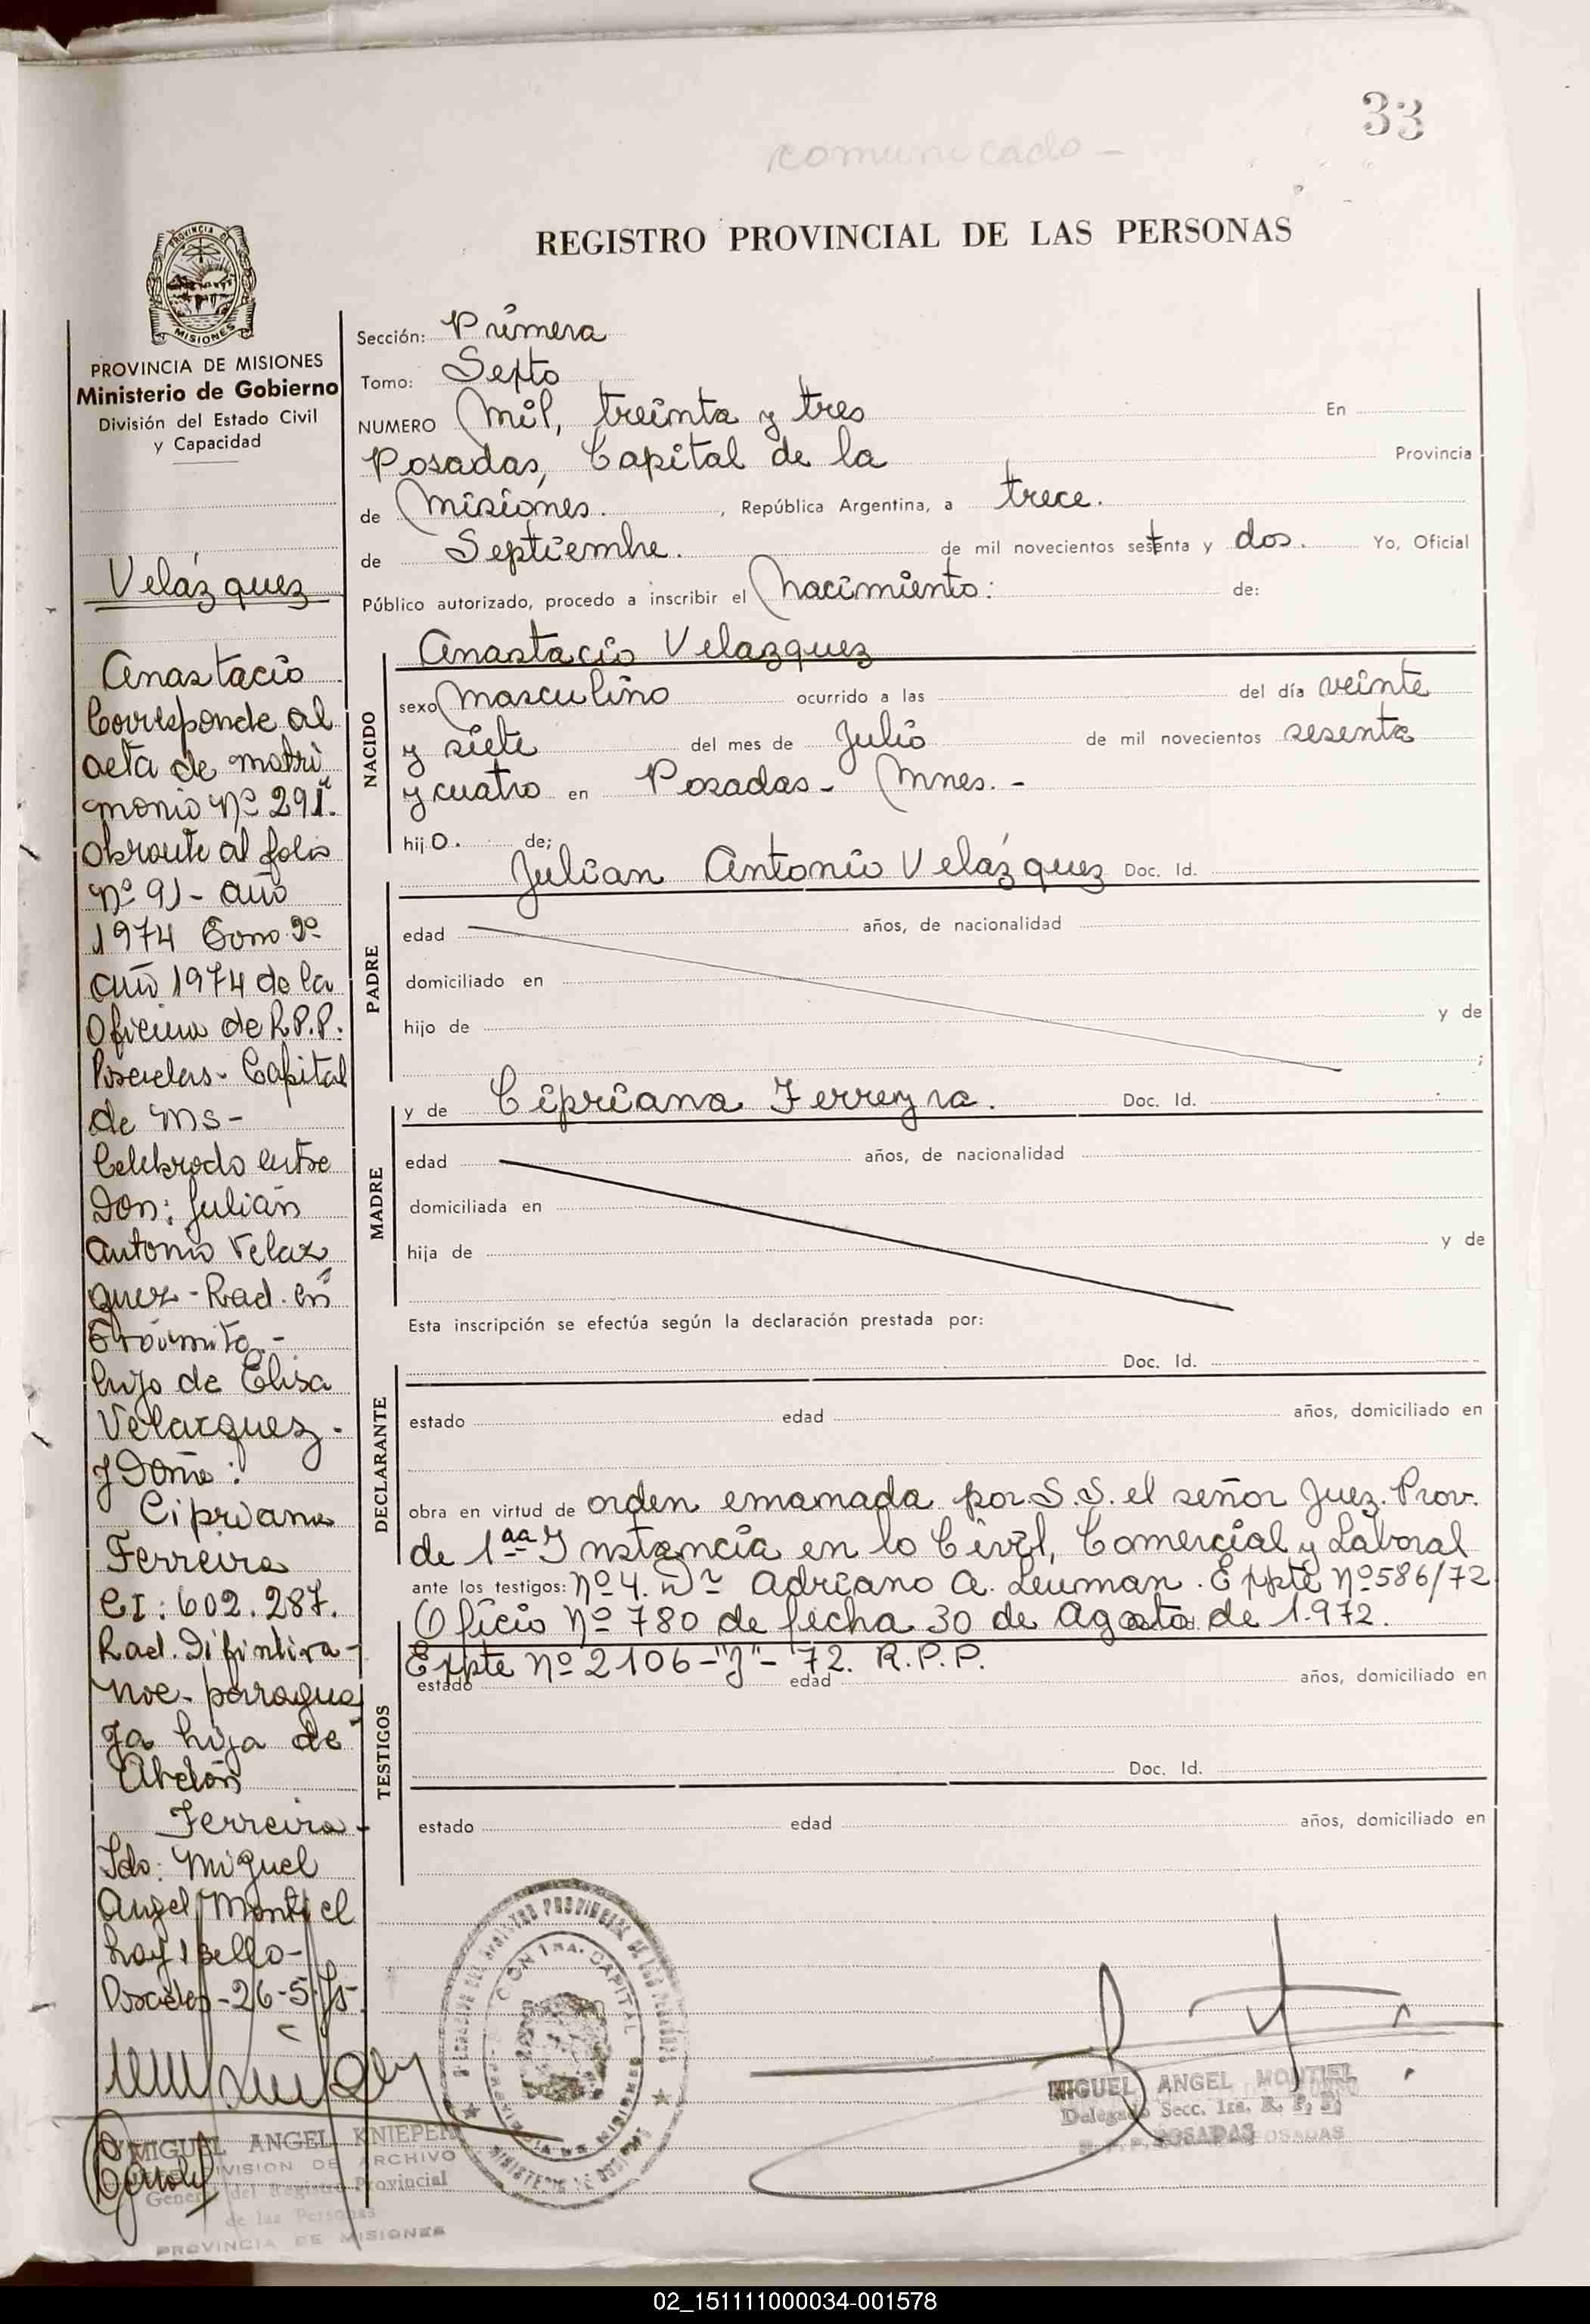 33
comunicado -
REGISTRO PROVINCIAL DE LAS PERSONAS
PROVINCIA DE MISIONES
Ministerio de Gobierno
División del Estado Civil
y Capacidad
Velázquez
Anastacio
Corresponde al
acta de matri
monio Nº 291.
Obrante al folio
Nº 91 - año
1974 Tomo 2º
año 1974 de la
Oficina de R.P.P.
Posadas - Capital
de Ms -
Celebrado entre
Don: Julián
Antonio Velaz
quez - Rad. en
hijo de Elisa
Velazquez.
y Doña:
Cipriana
Ferreira
CI: 602.287.
Rad. Difinitiva -
Nac. paragua
ya hija de
Abdón
Ferreira -
Fdo: Miguel
Angel Montiel
hay 1 sello -
Posadas - 26-5-75.
MIGUEL ANGEL KNIEPER
DIVISION DE ARCHIVO
General del Registro Provincial
de las Personas
PROVINCIA DE MISIONES
Sección: Primera
Tomo: Sexto
NUMERO Mil, treinta y tres En
Posadas, Capital de la Provincia
de Misiones. , República Argentina, a trece.
de Septiembre. de mil novecientos setenta y dos. Yo, Oficial
Público autorizado, procedo a inscribir el Nacimiento: de:
NACIDO
Anastacio Velazquez
sexo Masculino ocurrido a las del día veinte
y siete del mes de Julio de mil novecientos sesenta
y cuatro en Posadas - Mnes. -
hijo. de;
PADRE
Julian Antonio Velázquez Doc. Id.
edad años, de nacionalidad
domiciliado en
hijo de y de
;
MADRE
y de Cipriana Ferreyra. Doc. Id.
edad años, de nacionalidad
domiciliada en
hija de y de
Esta inscripción se efectúa según la declaración prestada por:
DECLARANTE
Doc. Id.
estado edad años, domiciliado en
obra en virtud de orden emanada por S.S. el señor Juez. Prov.
de 1ªª Instancia en lo Civil, Comercial y Laboral
ante los testigos: Nº 4. Dr Adriano A. Leuman. Expte Nº 586/72
Oficio Nº 780 de fecha 30 de Agosto de 1.972.
Expte Nº 2106-"J"-72. R.P.P.
TESTIGOS
estado edad años, domiciliado en
Doc. Id.
estado edad años, domiciliado en
MIGUEL ANGEL MONTIEL
Delegado Secc. 1ra. R. P. P.
POSADAS
02_151111000034-001578